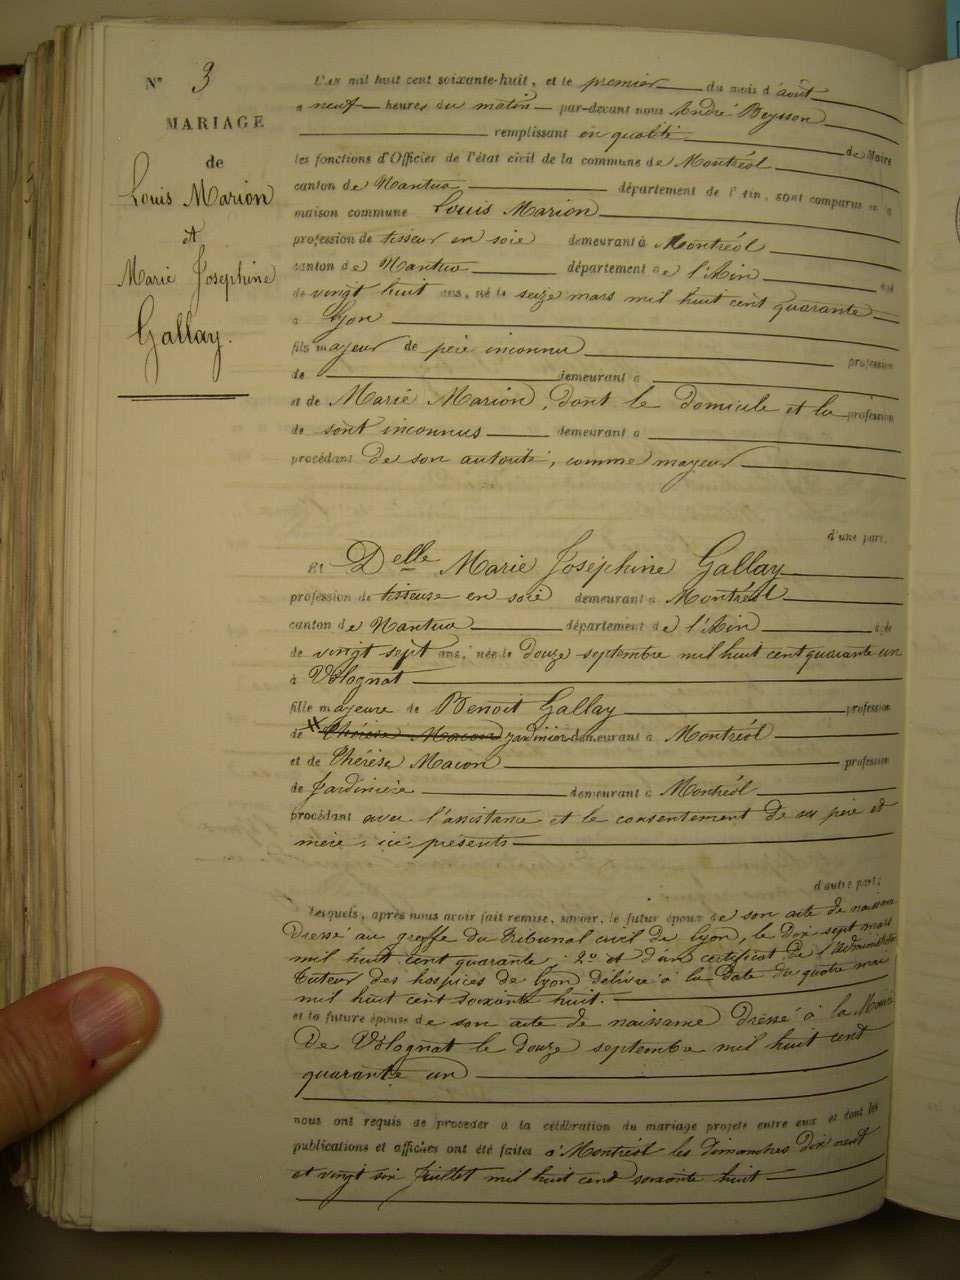 N° 3
MARIAGE
de
Louis Marion
et
Marie Josephine
Gallay.
L'an mil huit cent soixante-huit, et le premier du mois d'août
a neuf heures du matin par-devant nous André Beysson
remplissant en qualité de Maire
les fonctions d'Officier de l'état civil de la commune de Montréal
canton de Nantua département de l'Ain, sont comparus en la
maison commune Louis Marion
profession de tisseur en soie demeurant à Montréal
canton de Nantua département de l'Ain agé
de vingt huit ans, né le seize mars mil huit cent quarante
à Lyon
fils majeur de père inconnu profession
de demeurant a
et de Marie Marion, dont le domicile et la profession
de sont inconnus demeurant a
procédant de son autorité, comme majeur
d'une part.
Et Delle Marie Joséphine Gallay
profession de tisseuse en soie demeurant a Montréal
canton de Nantua département de l'Ain agée
de vingt sept ans, née le douze septembre mil huit cent quarante un
à Volognat
fille majeure de Benoit Gallay profession
de Thérèse Macon jardinier demeurant à Montréal
et de Thérèse Macon profession
de Jardinière demeurant à Montréal
procédant avec l'assistance et le consentement de ses père et
mère, ici présents
d'autre part;
Lesquels, après nous avoir fait remise, savoir, le futur époux de son acte de naissance
dressé au greffe du tribunal civil de Lyon, le dix sept mars
mil huit cent quarante; 2° et d'un certificat de l'administra
tuteur des hospices de Lyon délivré à la date du quatre mai
mil huit cent soixante huit.
et la future épouse de son acte de naissance dressé à la Mairie
de Volognat le douze septembre mil huit cent
quarante un
nous ont requis de procéder à la célébration du mariage projeté entre eux et dont les
publications et affiches ont été faites à Montréal les dimanches dix neuf
et vingt six Juillet mil huit cent soixante huit